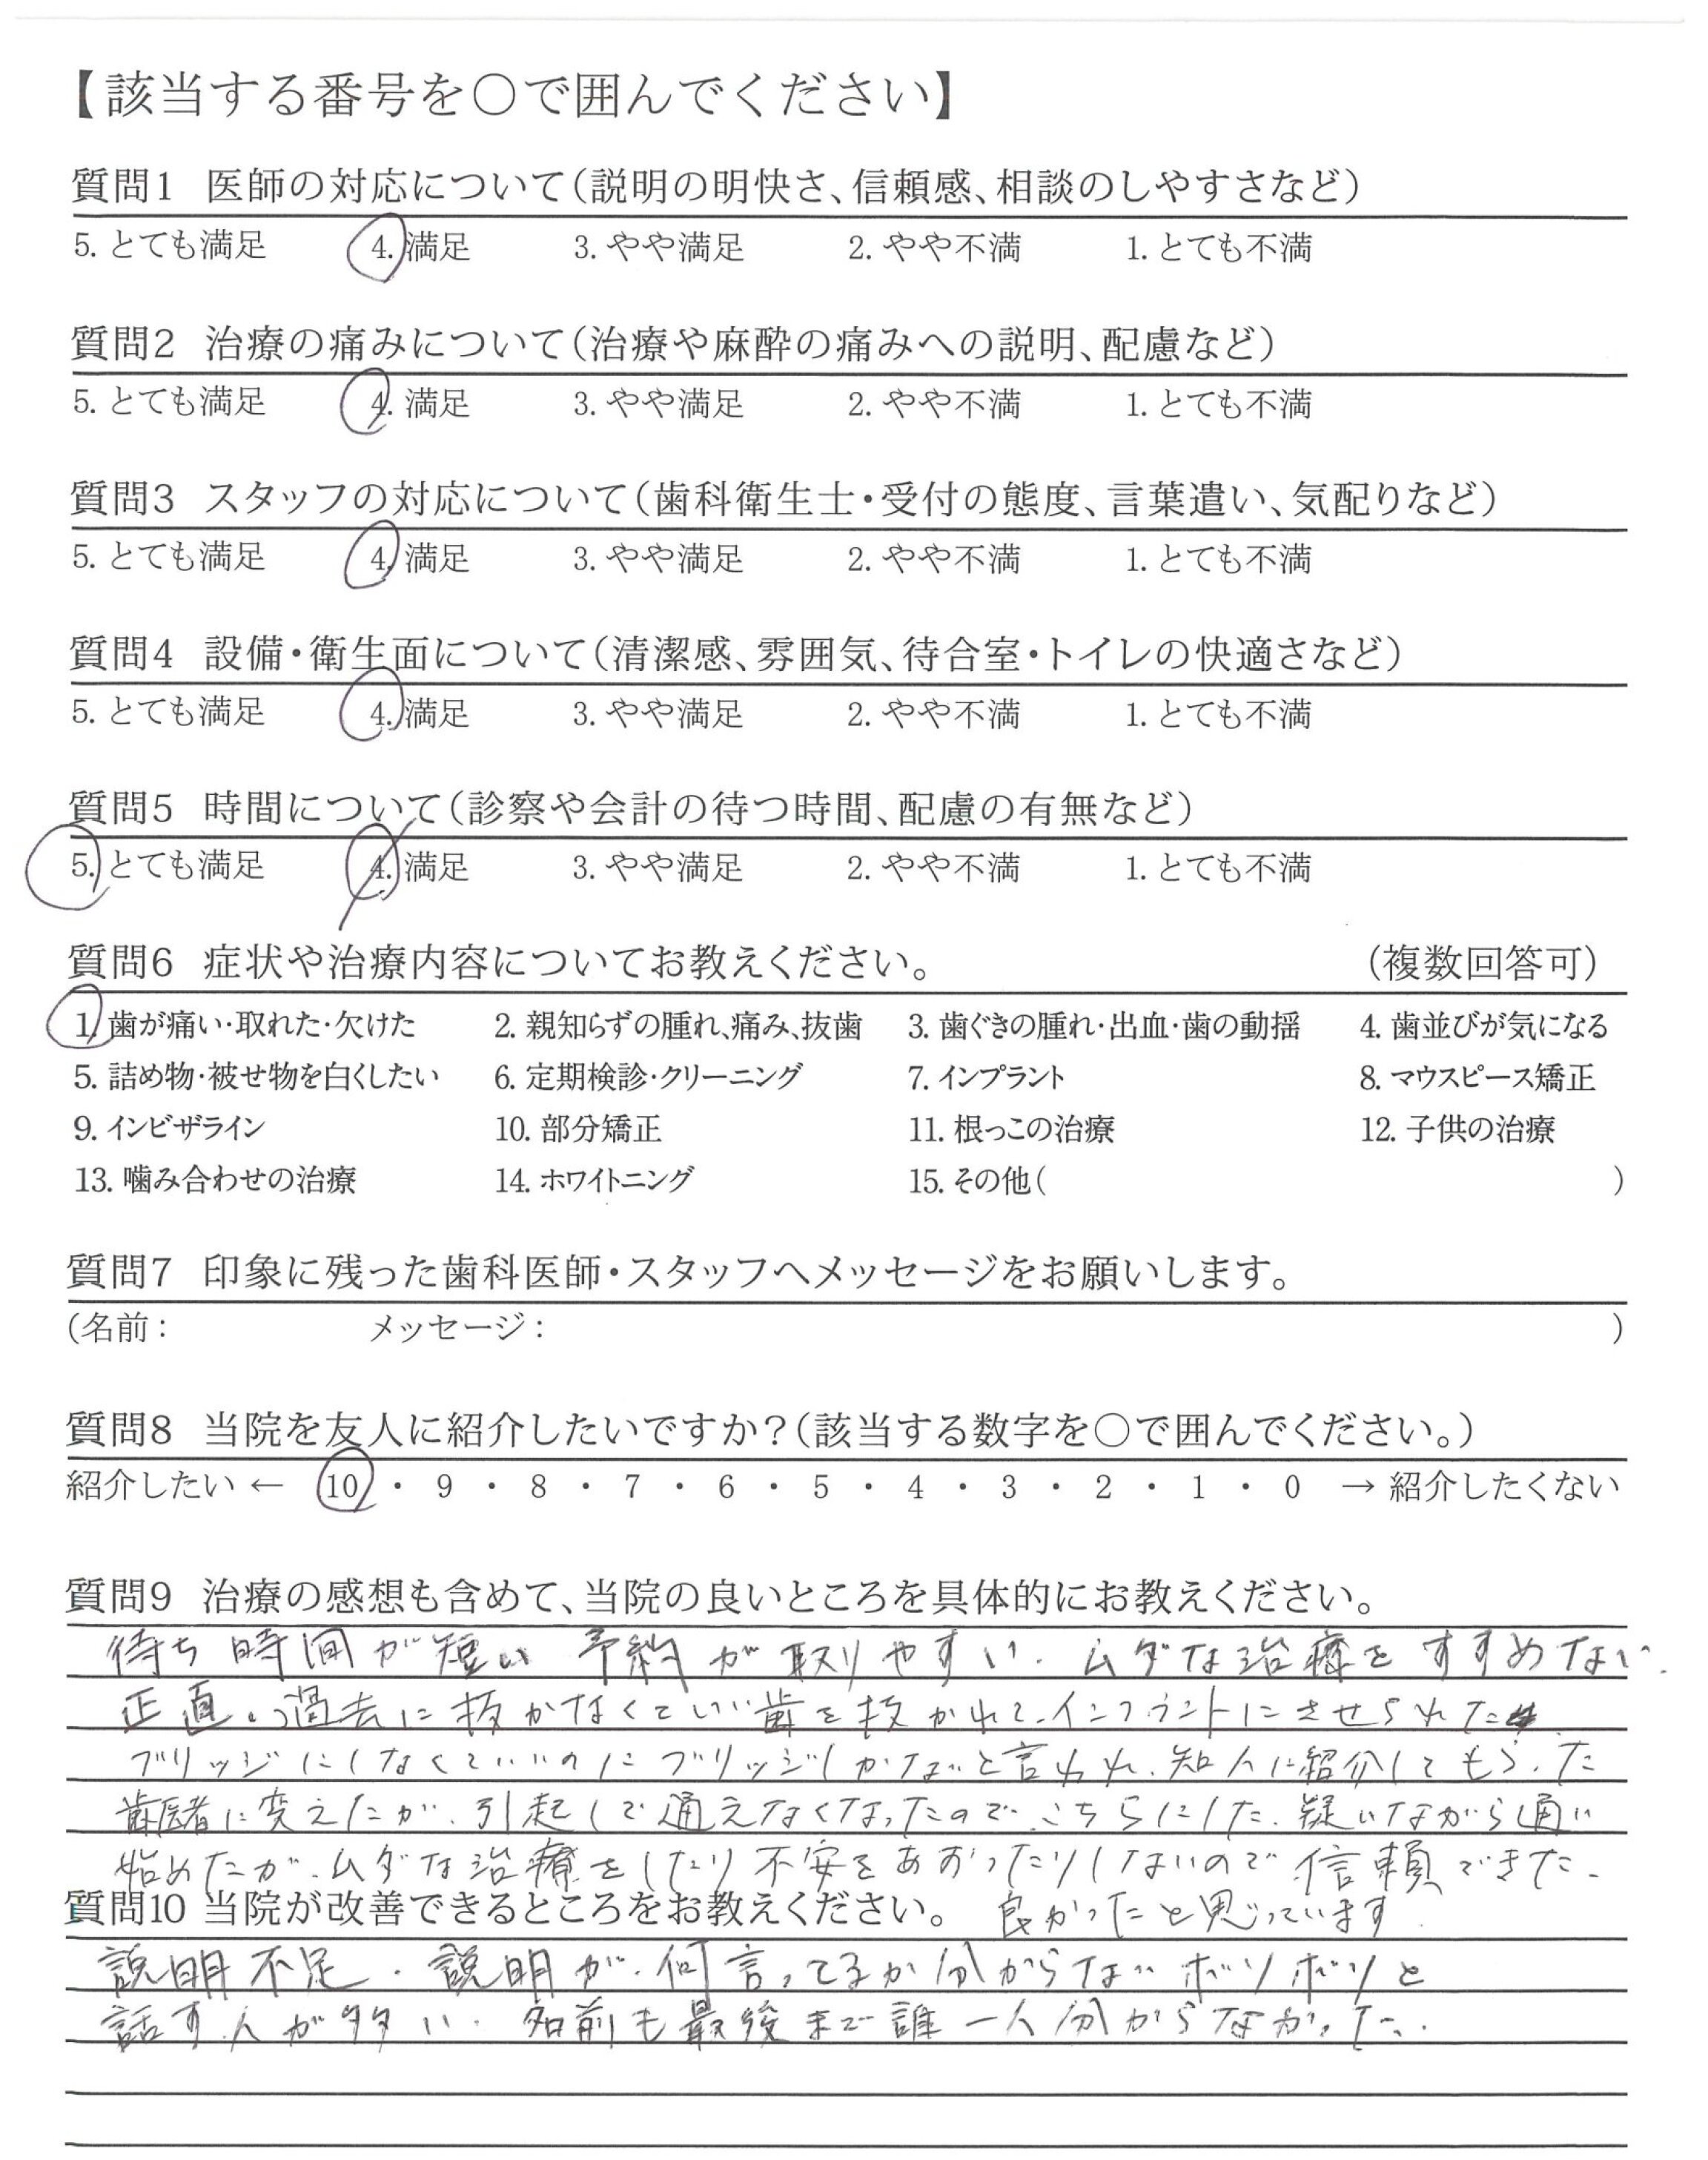 【該当する番号を○で囲んでください】
質問1 医師の対応について(説明の明快さ、信頼感、相談のしやすさなど)
5. とても満足 4. 満足 3. やや満足 2. やや不満 1. とても不満
質問2 治療の痛みについて(治療や麻酔の痛みへの説明、配慮など)
5. とても満足 4. 満足 3. やや満足 2. やや不満 1. とても不満
質問3 スタッフの対応について(歯科衛生士・受付の態度、言葉遣い、気配りなど)
5. とても満足 4. 満足 3. やや満足 2. やや不満 1. とても不満
質問4 設備・衛生面について(清潔感、雰囲気、待合室・トイレの快適さなど)
5. とても満足 4. 満足 3. やや満足 2. やや不満 1. とても不満
質問5 時間について(診察や会計の待つ時間、配慮の有無など)
5. とても満足 4. 満足 3. やや満足 2. やや不満 1. とても不満
質問6 症状や治療内容についてお教えください。 (複数回答可)
1. 歯が痛い・取れた・欠けた 2. 親知らずの腫れ、痛み、抜歯 3. 歯ぐきの腫れ・出血・歯の動揺 4. 歯並びが気になる
5. 詰め物・被せ物を白くしたい 6. 定期検診・クリーニング 7. インプラント 8. マウスピース矯正
9. インビザライン 10. 部分矯正 11. 根っこの治療 12. 子供の治療
13. 噛み合わせの治療 14. ホワイトニング 15. その他( )
質問7 印象に残った歯科医師・スタッフへメッセージをお願いします。
(名前: メッセージ: )
質問8 当院を友人に紹介したいですか?(該当する数字を○で囲んでください。)
紹介したい ← 10 ・ 9 ・ 8 ・ 7 ・ 6 ・ 5 ・ 4 ・ 3 ・ 2 ・ 1 ・ 0 → 紹介したくない
質問9 治療の感想も含めて、当院の良いところを具体的にお教えください。
待ち時間が短い 予約が取りやすい. ムダな治療をすすめない.
正直、過去に抜かなくていい歯を抜かれて、インプラントにさせられた
ブリッジにしなくていいのにブリッジしかないと言われ、知人に紹介してもらった
歯医者に変えたが、引越しで通えなくなったので、こちらにした. 疑いながら通い
始めたが、ムダな治療をしたり不安をあおったりしないので信頼できた.
質問10 当院が改善できるところをお教えください。 良かったと思っています.
説明不足. 説明が、何言ってるか分からないボソボソと
話す人が多い. 名前も最後まで誰一人分からなかった.